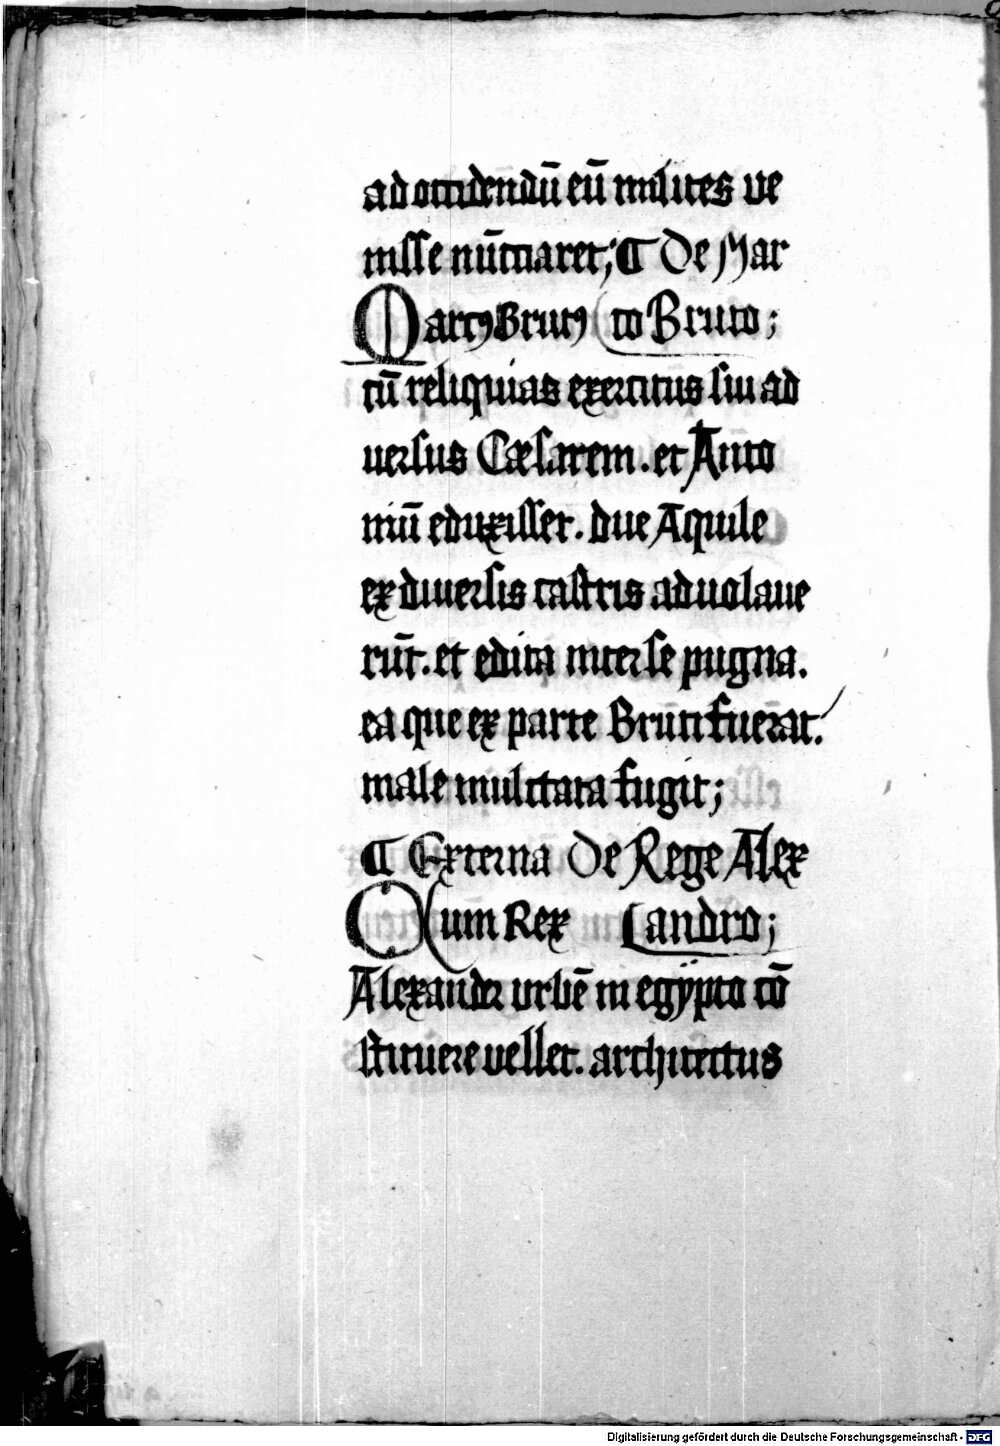 ad occidendū eū milites ve
nisse nūtiaret; ¶ De Mar
Marcꝰ Brutꝰ (co Bruto;
cū reliquias exercitus sui ad
uersus Cæsarem. et Anto
niū eduxisset. due Aquile
ex diuersis castris aduolaue
rūt. et edita inter se pugna.
ea que ex parte Bruti fuerat.
male mulctata fugit;
¶ Externa De Rege Alex
Cum Rex (andro;
Alexander urbē in egÿpto cō
stituere vellet. architectus
Digitalisierung gefördert durch die Deutsche Forschungsgemeinschaft - DFG